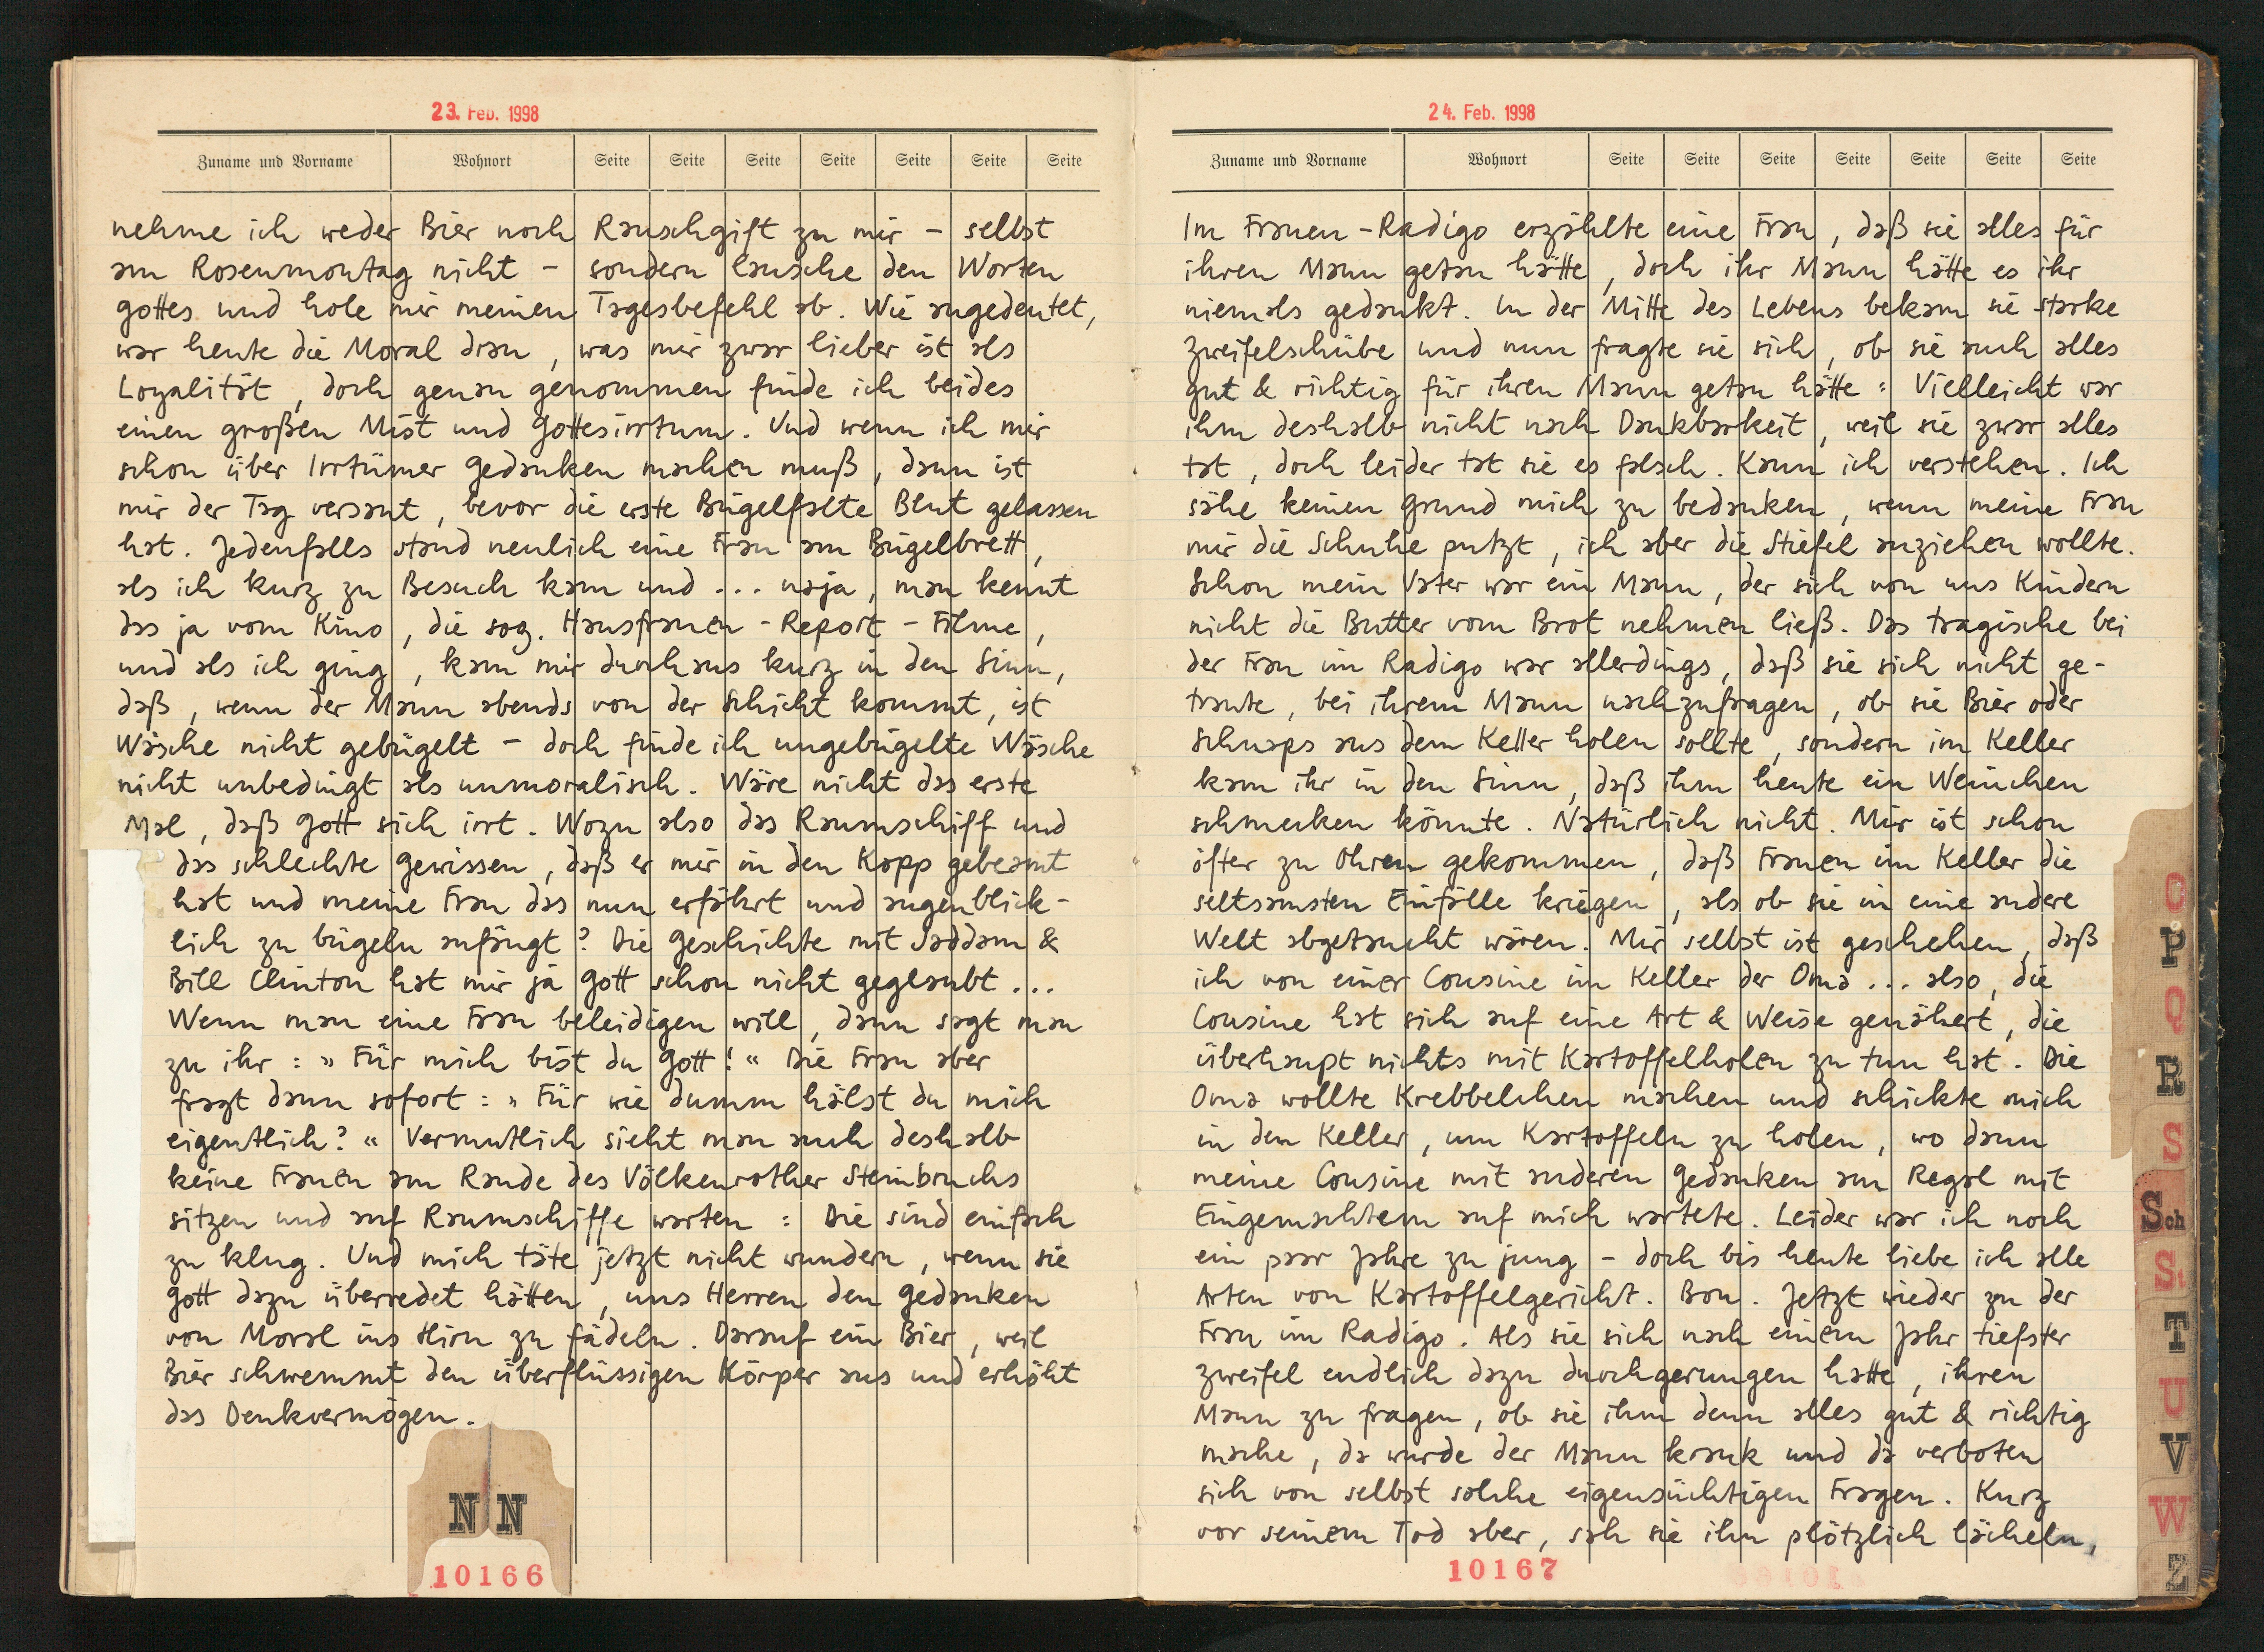 23. Feb. 1998
Zuname und Vorname Wohnort Seite Seite Seite Seite Seite Seite Seite
nehme ich weder Bier noch Rauschgift zu mir – selbst
am Rosenmontag nicht – sondern lausche den Worten
Gottes und hole mir meinen Tagesbefehl ab. Wie angedeutet,
war heute die Moral dran, was mir zwar lieber ist als
Loyalität, doch genau genommen finde ich beides
einen großen Mist und Gottesirrtum. Und wenn ich mir
schon über Irrtümer Gedanken machen muß, dann ist
mir der Tag versaut, bevor die erste Bügelfalte Blut gelassen
hat. Jedenfalls stand neulich eine Frau am Bügelbrett,
als ich kurz zu Besuch kam und ... naja, man kennt
das ja vom Kino, die sog. Hausfrauen-Report-Filme,
und als ich ging, kam mir durchaus kurz in den Sinn,
daß, wenn der Mann abends von der Schicht kommt, ist
Wäsche nicht gebügelt – doch finde ich ungebügelte Wäsche
nicht unbedingt als unmoralisch. Wäre nicht das erste
Mal, daß Gott sich irrt. Wozu also das Raumschiff und
das schlechte Gewissen, daß er mir in den Kopp gebeamt
hat und meine Frau das nun erfährt und augenblick-
lich zu bügeln anfängt? Die Geschichte mit Saddam &
Bill Clinton hat mir ja Gott schon nicht geglaubt ...
Wenn man eine Frau beleidigen will, dann sagt man
zu ihr: »Für mich bist du Gott!« Die Frau aber
fragt dann sofort: »Für wie dumm hälst du mich
eigentlich?« Vermutlich sieht man auch deshalb
keine Frauen am Rande des Völkenrother Steinbruchs
sitzen und auf Raumschiffe warten: Die sind einfach
zu klug. Und mich täte jetzt nicht wundern, wenn sie
Gott dazu überredet hätten, uns Herren den Gedanken
von Moral ins Hirn zu fädeln. Darauf ein Bier, weil
Bier schwemmt den überflüssigen Körper aus und erhöht
das Denkvermögen.
N N
10166
24. Feb. 1998
Zuname und Vorname Wohnort Seite Seite Seite Seite Seite Seite Seite
Im Frauen-Radigo erzählte eine Frau, daß sie alles für
ihren Mann getan hätte, doch ihr Mann hätte es ihr
niemals gedankt. In der Mitte des Lebens bekam sie starke
Zweifelschübe und nun fragte sie sich, ob sie auch alles
gut & richtig für ihren Mann getan hätte: Vielleicht war
ihm deshalb nicht nach Dankbarkeit, weil sie zwar alles
tat, doch leider tat sie es falsch. Kann ich verstehen. Ich
sähe keinen Grund mich zu bedanken, wenn meine Frau
mir die Schuhe putzt, ich aber die Stiefel anziehen wollte.
Schon mein Vater war ein Mann, der sich von uns Kindern
nicht die Butter vom Brot nehmen ließ. Das tragische bei
der Frau im Radigo war allerdings, daß sie sich nicht ge-
traute, bei ihrem Mann nachzufragen, ob sie Bier oder
Schnaps aus dem Keller holen sollte, sondern im Keller
kam ihr in den Sinn, daß ihm heute ein Weinchen
schmecken könnte. Natürlich nicht. Mir ist schon
öfter zu Ohren gekommen, daß Frauen im Keller die
seltsamsten Einfälle kriegen, als ob sie in eine andere
Welt abgetaucht wären. Mir selbst ist geschehen, daß
ich von einer Cousine im Keller der Oma ... also, die
Cousine hat sich auf eine Art & Weise genähert, die
überhaupt nichts mit Kartoffelholen zu tun hat. Die
Oma wollte Krebbelchen machen und schickte mich
in den Keller, um Kartoffeln zu holen, wo dann
meine Cousine mit anderen Gedanken am Regal mit
Eingemachtem auf mich wartete. Leider war ich noch
ein paar Jahre zu jung – doch bis heute liebe ich alle
Arten von Kartoffelgericht. Bon. Jetzt wieder zu der
Frau im Radigo. Als sie sich nach einem Jahr tiefster
Zweifel endlich dazu durchgerungen hatte, ihren
Mann zu fragen, ob sie ihm denn alles gut & richtig
mache, da wurde der Mann krank und da verboten
sich von selbst solche eigensüchtigen Fragen. Kurz
vor seinem Tod aber, sah sie ihn plötzlich lächeln,
10167
O
P
Q
R
S
Sch
St
T
U
V
W
Z